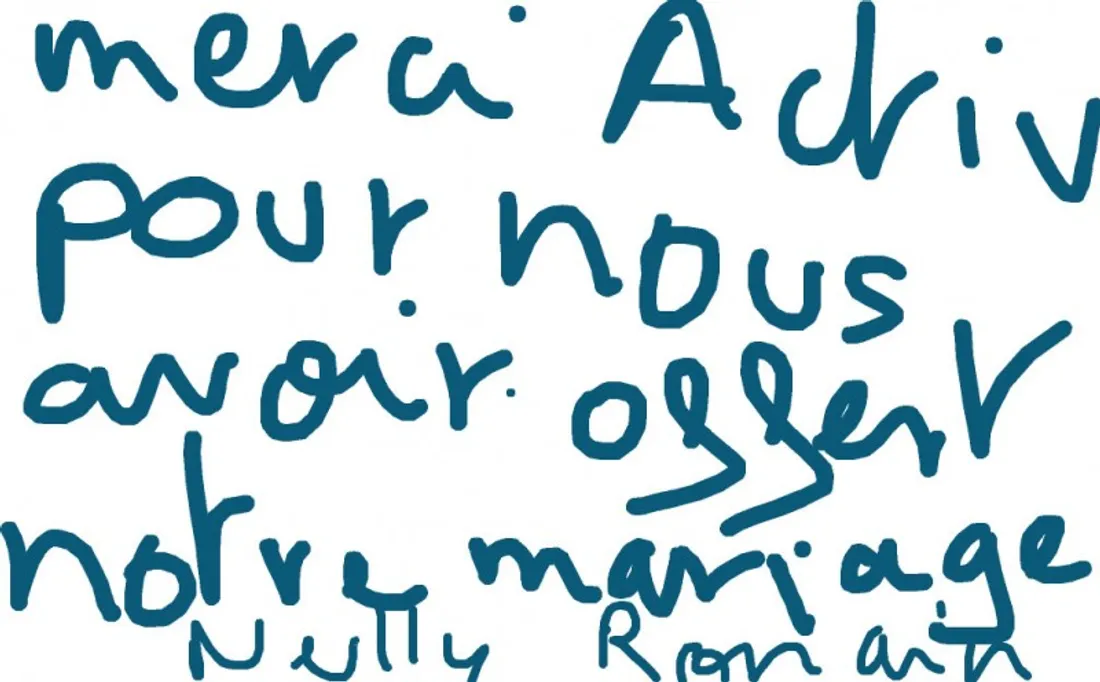 merci Activ
pour nous
avoir offert
notre mariage
Nelly Romain